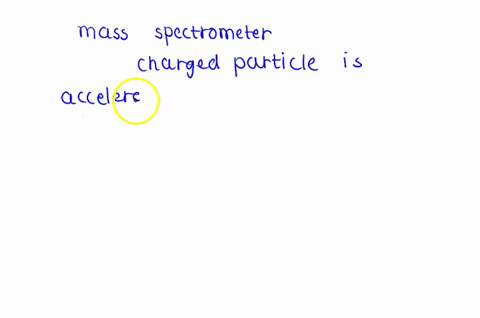 mass spectrometer
charged particle is
accelera